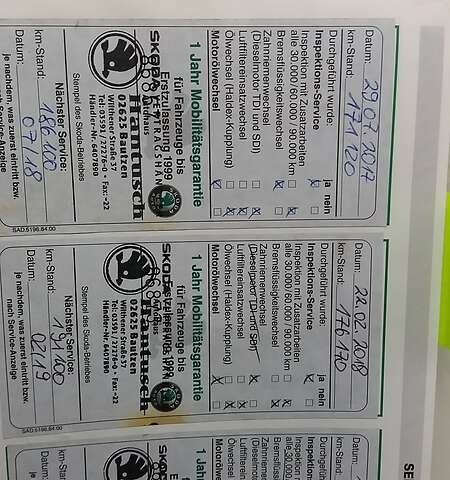 Datum: 29.07.2017
km-Stand: 171120
Durchgeführt wurde: ja nein
Inspektions-Service
Inspektion mit Zusatzarbeiten
alle 30.000/60.000/90.000 km
Bremsflüssigkeitswechsel
Zahnriemenwechsel
(Dieselmotor TD und SDI)
Luftfiltereinsatzwechsel
Ölwechsel (Haldex-Kupplung)
Motorölwechsel
1 Jahr Mobilitätsgarantie
für Fahrzeuge bis
Erstzulassung 1999
Autohaus
Hantusch
02625 Bautzen
Wilthener Straße 37
Tel.: 03591 / 27276-0 • Fax: -22
Händler-Nr. 6407890
Stempel des Skoda-Betriebes
Nächster Service:
km-Stand: 186100
Datum: 07/18
je nachdem, was zuerst eintritt bzw.
SAD.5198.84.00
Datum: 22.02.2018
km-Stand: 176170
Durchgeführt wurde: ja nein
Inspektions-Service
Inspektion mit Zusatzarbeiten
alle 30.000/60.000/90.000 km
Bremsflüssigkeitswechsel
Zahnriemenwechsel
(Dieselmotor TD und SDI)
Luftfiltereinsatzwechsel
Ölwechsel (Haldex-Kupplung)
Motorölwechsel
1 Jahr Mobilitätsgarantie
für Fahrzeuge bis
Hantusch
02625 Bautzen
Wilthener Straße 37
Tel.: 03591 / 27276-0 • Fax: -22
Händler-Nr. 6407890
Stempel des Skoda-Betriebes
Nächster Service:
km-Stand: 191100
Datum: 02/19
je nachdem, was zuerst eintritt bzw.
nach Service-Anzeige
SAD.5198.84.00
Datum:
km-Stand:
Durchgeführt
Inspektions-Se
Inspektion mit
alle 30.000/60
Bremsflüssigk
Zahnriemenwe
(Dieselmotor
Luftfiltereinsa
Ölwechsel (H
Motorölwech
1 Jahr M
für
SE